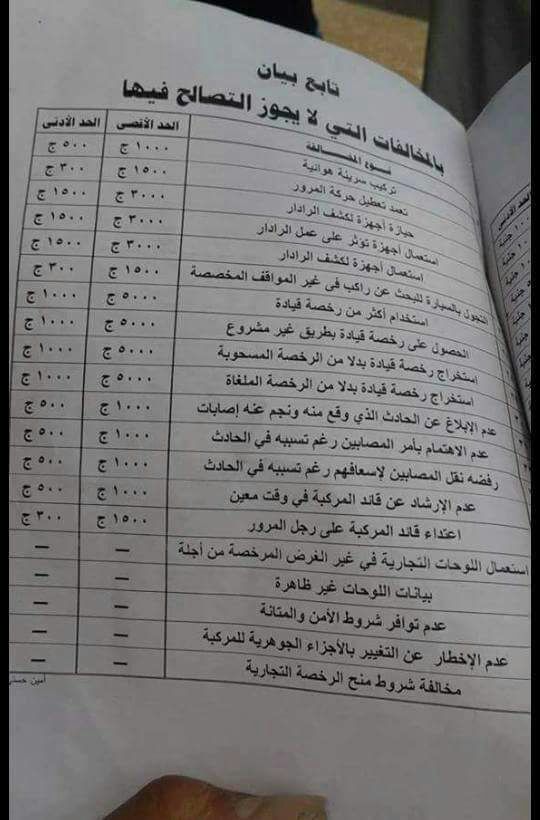 تابع بيان
بالمخالفات التي لا يجوز التصالح فيها
نوع المخالفة الحد الأقصى الحد الأدنى
تركيب سرينة هوائية ١٠٠٠ ج ٥٠٠ ج
تعمد تعطيل حركة المرور ١٥٠٠ ج ٣٠٠ ج
حيازة أجهزة لكشف الرادار ٣٠٠٠ ج ١٥٠٠ ج
استعمال أجهزة تؤثر على عمل الرادار ٣٠٠٠ ج ١٥٠٠ ج
استعمال أجهزة لكشف الرادار ٣٠٠٠ ج ١٥٠٠ ج
التجول بالسيارة للبحث عن راكب فى غير المواقف المخصصة ١٥٠٠ ج ٣٠٠ ج
استخدام أكثر من رخصة قيادة ٥٠٠٠ ج ١٠٠٠ ج
الحصول على رخصة قيادة بطريق غير مشروع ٥٠٠٠ ج ١٠٠٠ ج
استخراج رخصة قيادة بدلا من الرخصة المسحوبة ٥٠٠٠ ج ١٠٠٠ ج
استخراج رخصة قيادة بدلا من الرخصة الملغاة ٥٠٠٠ ج ١٠٠٠ ج
عدم الإبلاغ عن الحادث الذي وقع منه ونجم عنه إصابات ١٠٠٠ ج ٥٠٠ ج
عدم الاهتمام بأمر المصابين رغم تسببه في الحادث ١٠٠٠ ج ٥٠٠ ج
رفضه نقل المصابين لإسعافهم رغم تسببه في الحادث ١٠٠٠ ج ٥٠٠ ج
عدم الإرشاد عن قائد المركبة في وقت معين ١٠٠٠ ج ٥٠٠ ج
اعتداء قائد المركبة على رجل المرور ١٥٠٠ ج ٣٠٠ ج
استعمال اللوحات التجارية في غير الغرض المرخصة من أجلة — —
بيانات اللوحات غير ظاهرة — —
عدم توافر شروط الأمن والمتانة — —
عدم الإخطار عن التغيير بالأجزاء الجوهرية للمركبة — —
مخالفة شروط منح الرخصة التجارية — —
أمين حسني